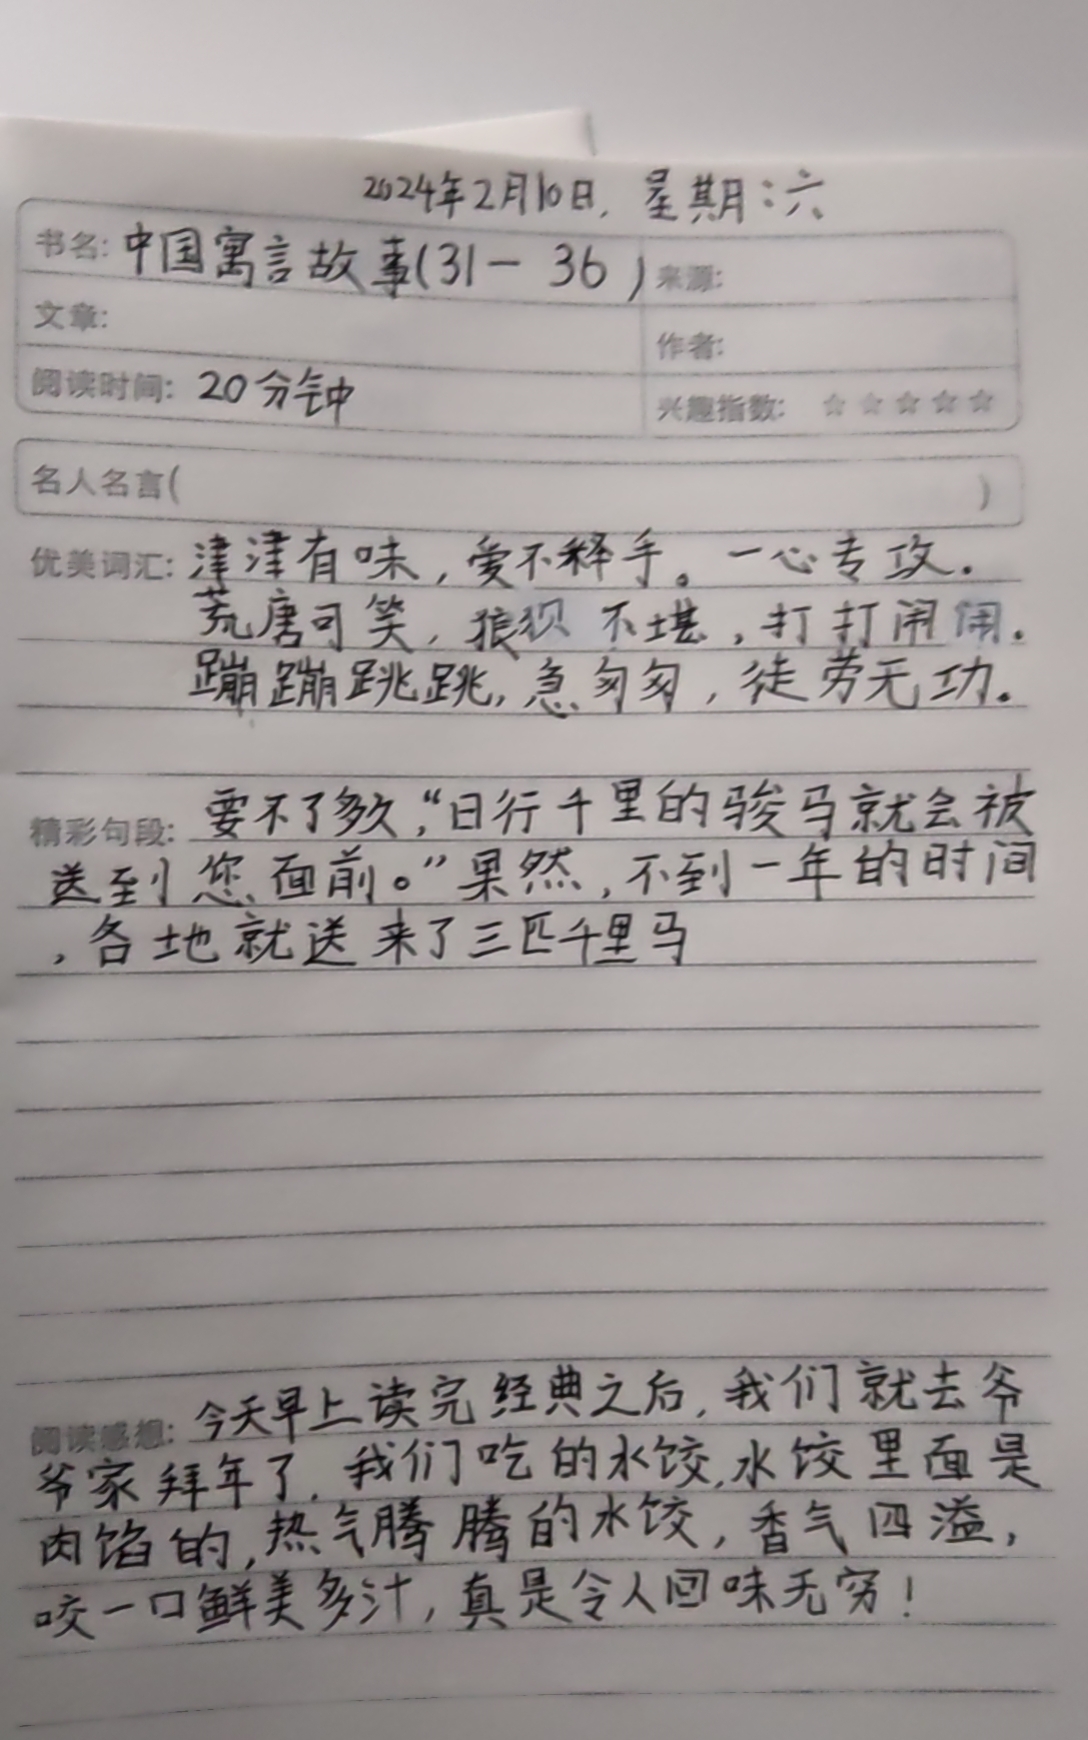 2024年2月10日, 星期:六
书名: 中国寓言故事(31- 36 ) 来源:
文章:
作者:
阅读时间: 20分钟
兴趣指数: ☆☆☆☆☆
名人名言( )
优美词汇: 津津有味, 爱不释手。一心专攻.
荒唐可笑, 狼狈不堪, 打打闹闹.
蹦蹦跳跳, 急匆匆, 徒劳无功。
精彩句段: 要不了多久,“日行千里的骏马就会被
送到您面前。”果然, 不到一年的时间
, 各地就送来了三匹千里马
阅读感想: 今天早上读完经典之后, 我们就去爷
爷家拜年了, 我们吃的水饺, 水饺里面是
肉馅的, 热气腾腾的水饺, 香气四溢,
咬一口鲜美多汁, 真是令人回味无穷!